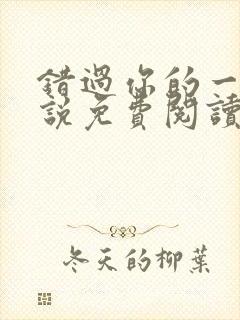 錯過你的一
說免費閱讀
冬天的柳葉